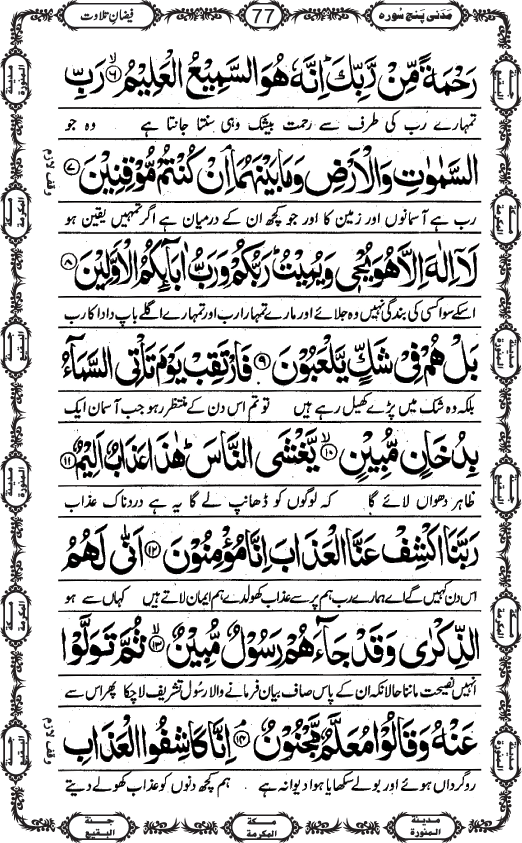 مَدَنی پَنج سُورہ
77
فیضانِ تلاوت
رَحْمَةً مِّنْ رَّبِّكَ ؕ اِنَّهٗ هُوَ السَّمِیْعُ الْعَلِیْمُ ۙ﴿۶﴾ رَبِّ
تمہارے رب کی طرف سے رحمت بیشک وہی سنتا جانتا ہے وہ جو
السَّمٰوٰتِ وَ الْاَرْضِ وَ مَا بَیْنَهُمَا ۘ اِنْ كُنْتُمْ مُّوْقِنِیْنَ ﴿۷﴾
وقف لازم
رب ہے آسمانوں اور زمین کا اور جو کچھ ان کے درمیان ہے اگر تمہیں یقین ہو
لَاۤ اِلٰهَ اِلَّا هُوَ یُحْیٖ وَ یُمِیْتُ ؕ رَبُّكُمْ وَ رَبُّ اٰبَآىٕكُمُ الْاَوَّلِیْنَ ﴿۸﴾
اسکے سوا کسی کی بندگی نہیں وہ جلائے اور مارے تمہارا رب اور تمہارے اگلے باپ دادا کا رب
بَلْ هُمْ فِیْ شَكٍّ یَّلْعَبُوْنَ ﴿۹﴾ فَارْتَقِبْ یَوْمَ تَاْتِی السَّمَآءُ
بلکہ وہ شک میں پڑے کھیل رہے ہیں تو تم اس دن کے منتظر رہو جب آسمان ایک
بِدُخَانٍ مُّبِیْنٍ ۙ﴿۱۰﴾ یَّغْشَى النَّاسَ ؕ هٰذَا عَذَابٌ اَلِیْمٌ ﴿۱۱﴾
ظاہر دھواں لائے گا کہ لوگوں کو ڈھانپ لے گا یہ ہے دردناک عذاب
رَبَّنَا اكْشِفْ عَنَّا الْعَذَابَ اِنَّا مُؤْمِنُوْنَ ﴿۱۲﴾ اَنّٰى لَهُمُ
اس دن کہیں گے اے ہمارے رب ہم پر سے عذاب کھول دے ہم ایمان لاتے ہیں کہاں سے ہو
الذِّكْرٰى وَ قَدْ جَآءَهُمْ رَسُوْلٌ مُّبِیْنٌ ۙ﴿۱۳﴾ ثُمَّ تَوَلَّوْا
انہیں نصیحت ماننا حالانکہ ان کے پاس صاف بیان فرمانے والا رسول تشریف لا چکا پھر اس سے
عَنْهُ وَ قَالُوْا مُعَلَّمٌ مَّجْنُوْنٌ ۘ﴿۱۴﴾ اِنَّا كَاشِفُوا الْعَذَابِ
وقف لازم
روگرداں ہوئے اور بولے سکھایا ہوا دیوانہ ہے ہم کچھ دنوں کو عذاب کھولے دیتے
مدینة المنورة
مكة المكرمة
جنة البقيع
مدینة المنورة
مكة المكرمة
جنة البقيع
جنة البقيع
مكة المكرمة
مدینة المنورة
جنة البقيع
مكة المكرمة
مدینة المنورة
مدینة المنورة
مكة المكرمة
جنة البقيع